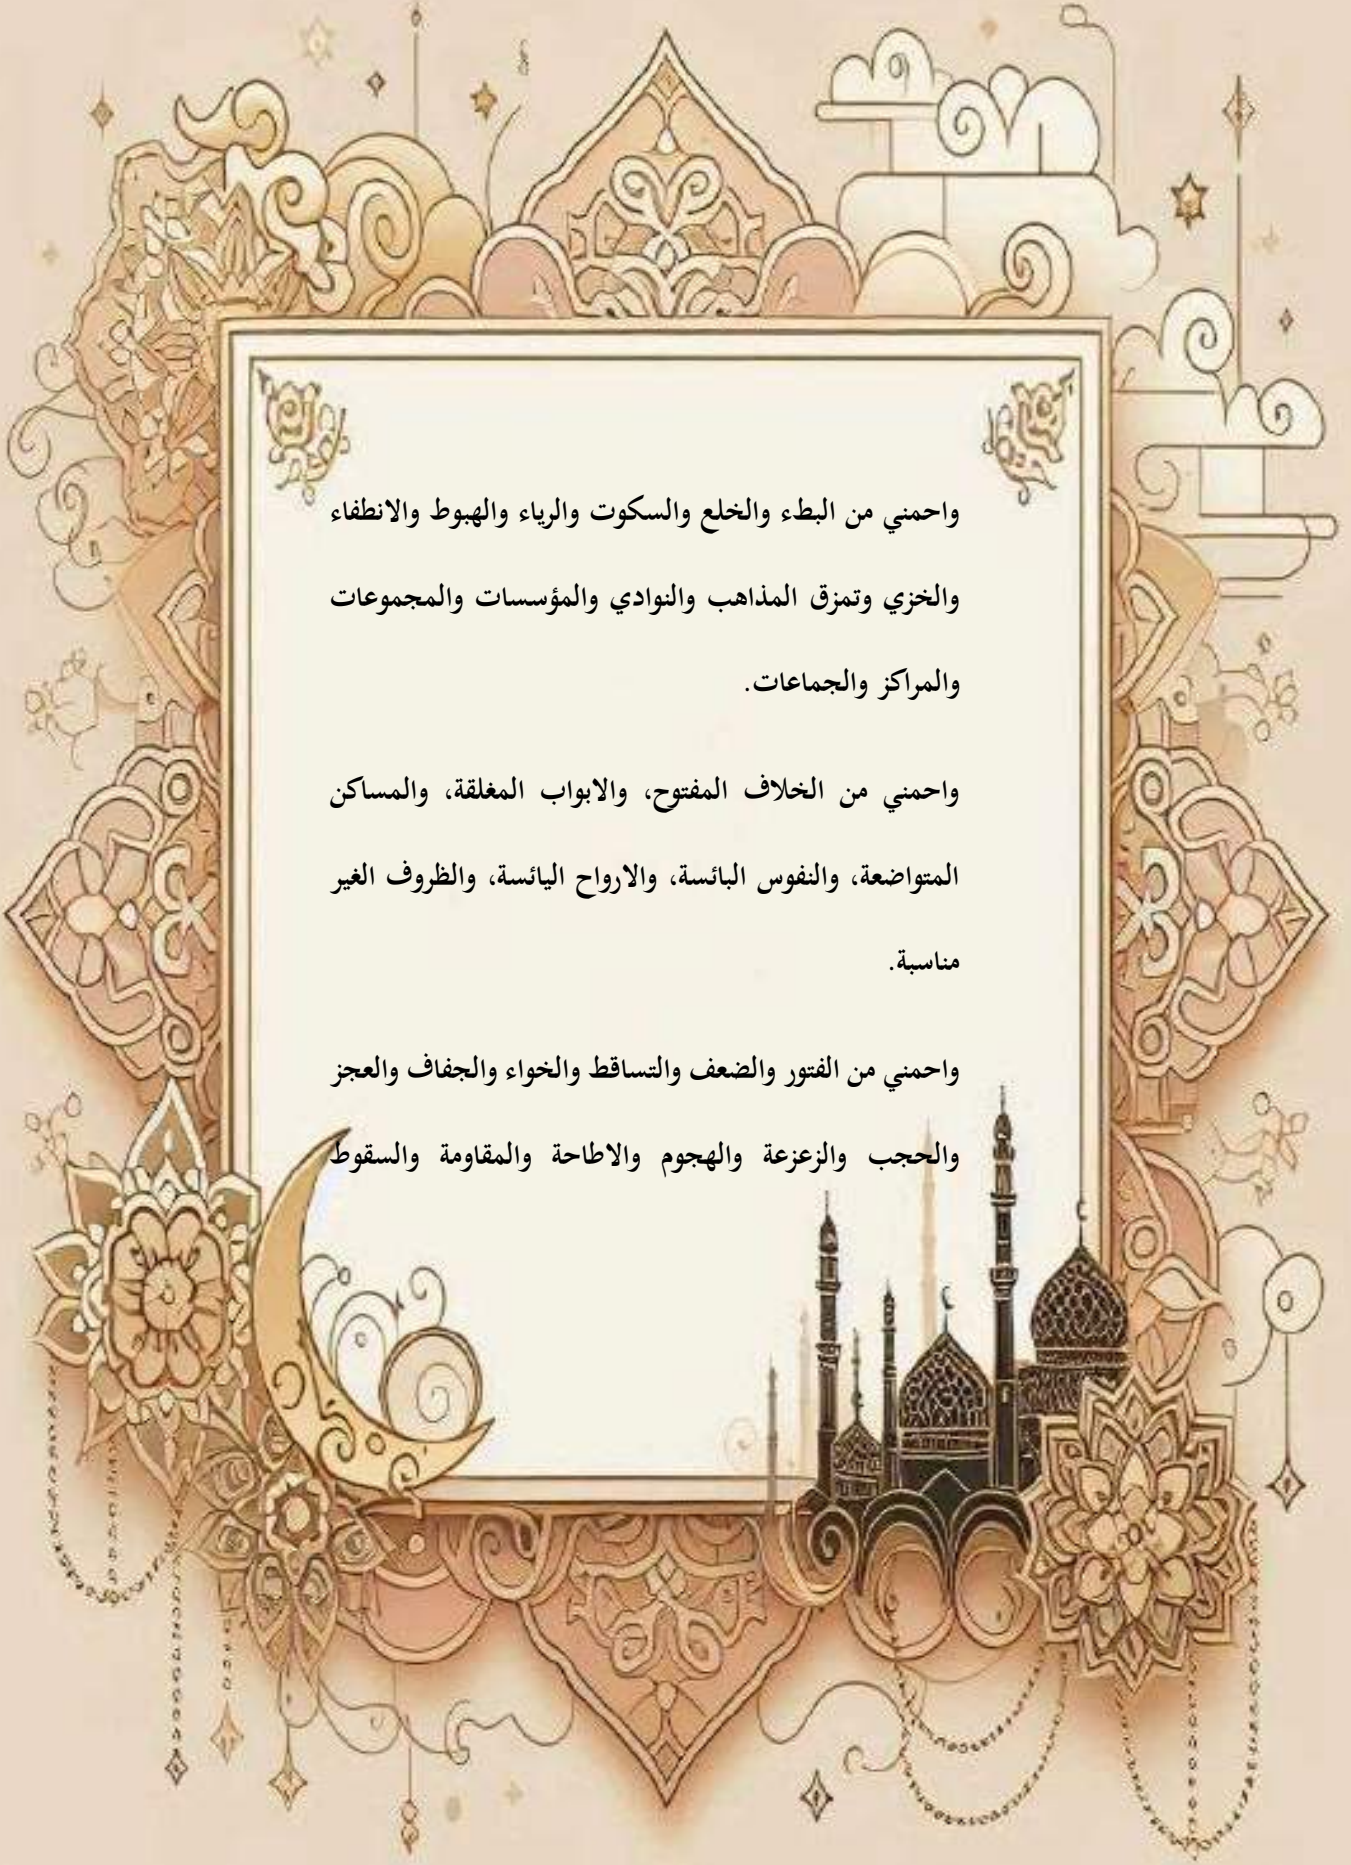 واحمني من البطء والخلع والسكوت والرياء والهبوط والانطفاء
والخزي وتمزق المذاهب والنوادي والمؤسسات والمجموعات
والمراكز والجماعات.
واحمني من الخلاف المفتوح، والابواب المغلقة، والمساكن
المتواضعة، والنفوس البائسة، والارواح اليائسة، والظروف الغير
مناسبة.
واحمني من الفتور والضعف والتساقط والخواء والجفاف والعجز
والحجب والزعزعة والهجوم والاطاحة والمقاومة والسقوط